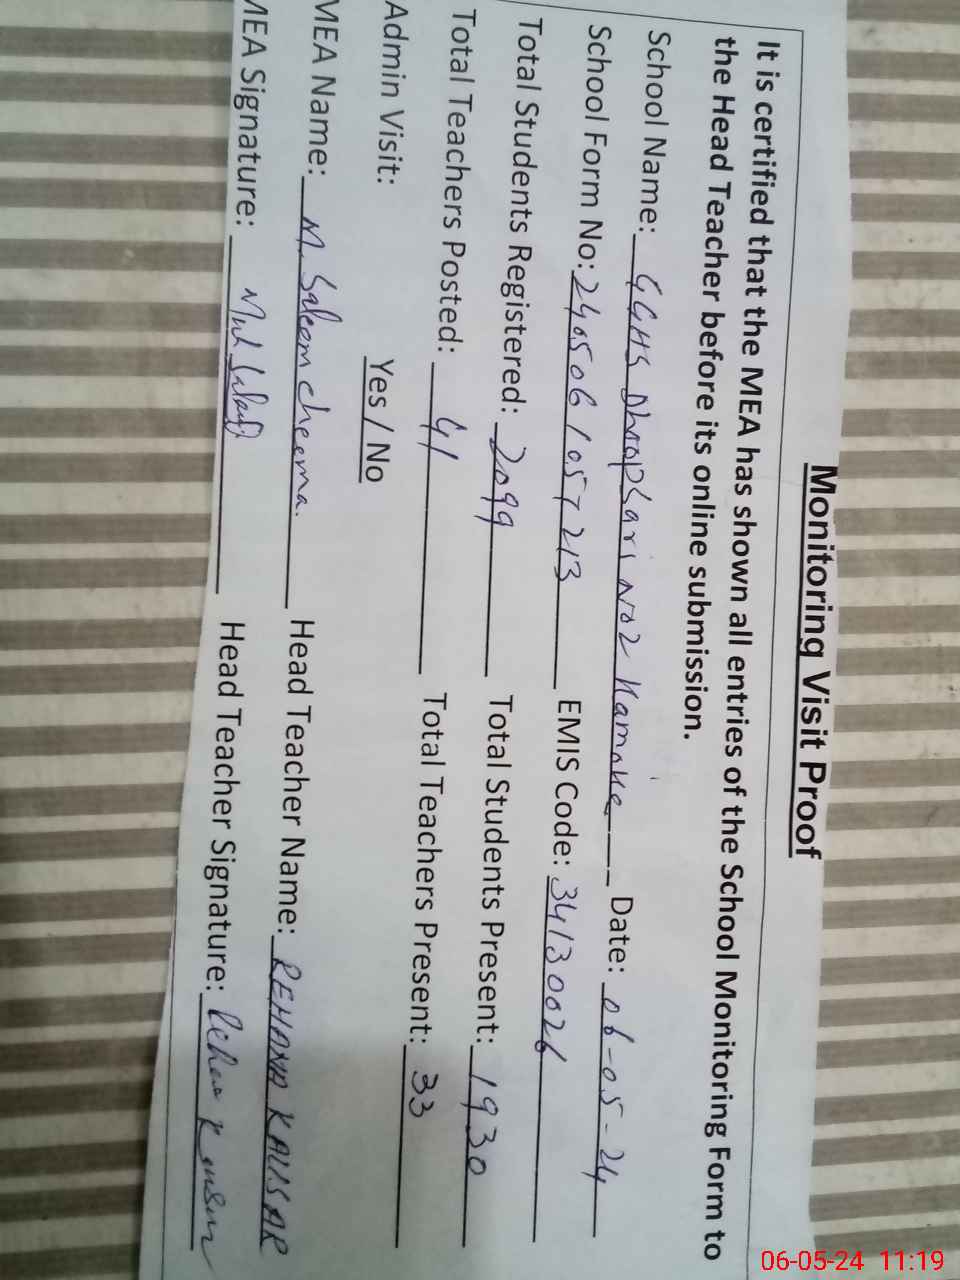 Monitoring Visit Proof
It is certified that the MEA has shown all entries of the School Monitoring Form to
the Head Teacher before its online submission.
School Name: GGHS Dhoopsari No2 Kamoke Date: 06-05-24
School Form No: 240506 1057213 EMIS Code: 34130026
Total Students Registered: 2099 Total Students Present: 1930
Total Teachers Posted: 41 Total Teachers Present: 33
Admin Visit: Yes / No
MEA Name: M. Saleem cheema. Head Teacher Name: REHANA KAUSAR
MEA Signature: Head Teacher Signature:
06-05-24 11:19